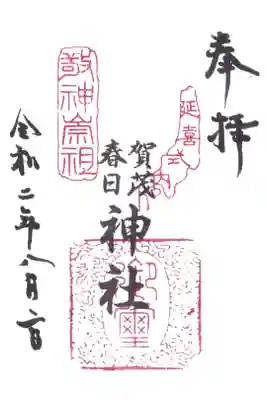 奉拝
延喜式内
賀茂
春日
神社
敬神崇祖
令和二年八月二日